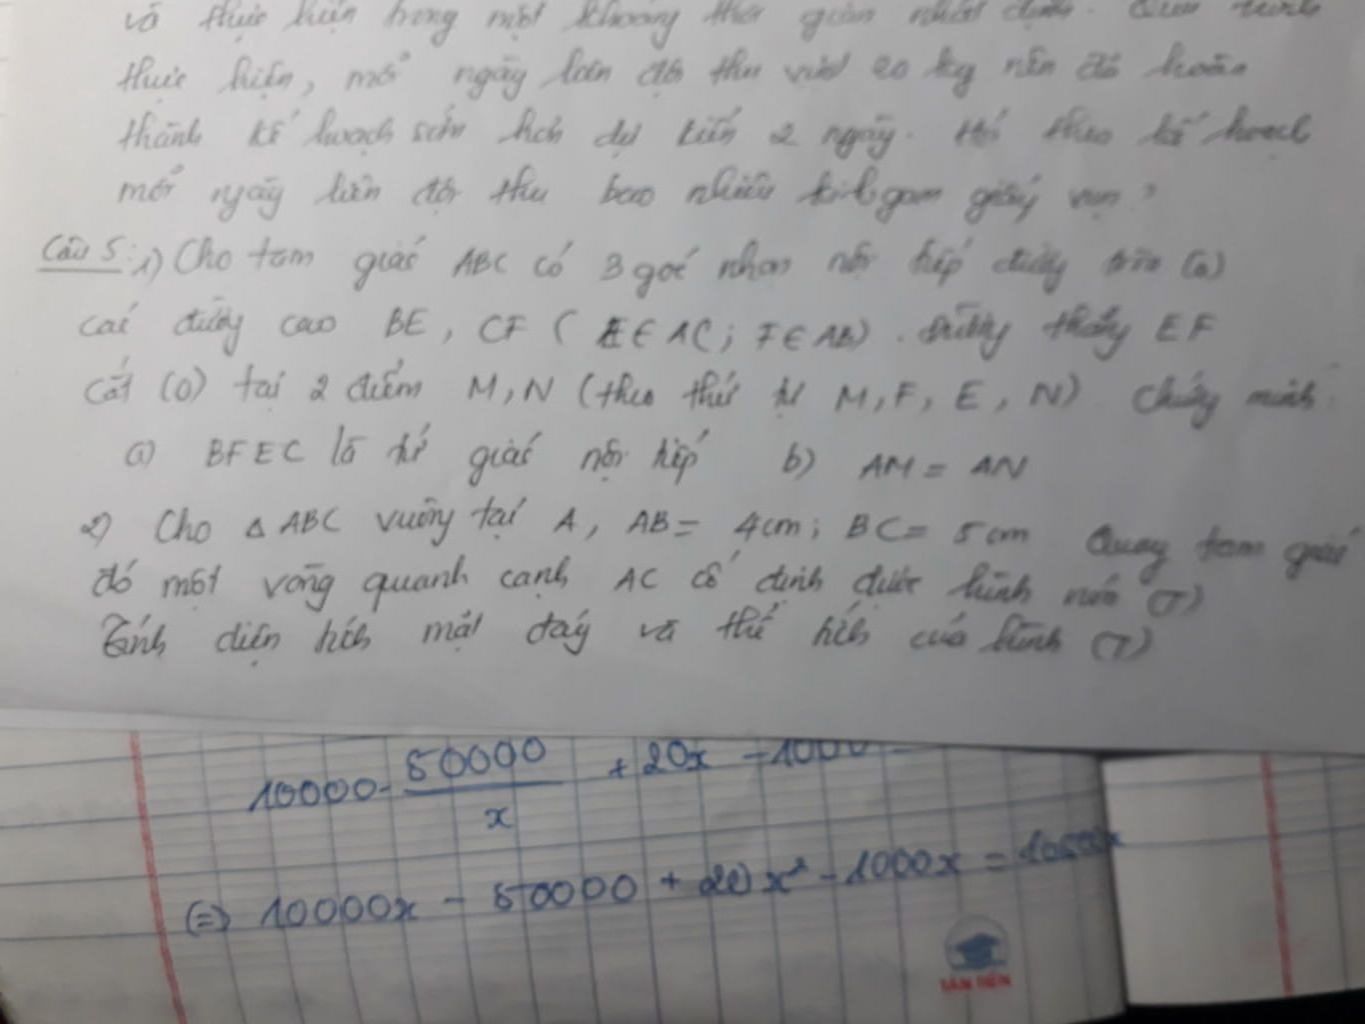 và thực hiện trong một khoảng thời gian nhất định.
thực hiện, mỗi ngày liên đội thu vượt 20 kg nên đã hoàn
thành kế hoạch sớm hơn dự kiến 2 ngày. Hỏi theo kế hoạch
mỗi ngày liên đội thu bao nhiêu kilôgam giấy vụn?
Câu 5: 1) Cho tam giác ABC có 3 góc nhọn nội tiếp đường tròn (O)
các đường cao BE, CF (E∈AC; F∈AB). Đường thẳng EF
cắt (O) tại 2 điểm M, N (theo thứ tự M, F, E, N) Chứng minh:
a) BFEC là tứ giác nội tiếp b) AM = AN
2) Cho Δ ABC vuông tại A, AB = 4cm; BC = 5cm Quay tam giác
đó một vòng quanh cạnh AC cố định được hình nón (T)
Tính diện tích mặt đáy và thể tích của hình (T)
10000 - 50000/x + 20x - 1000
(=) 10000x - 50000 + 20x² - 1000x =
TÂN TIẾN